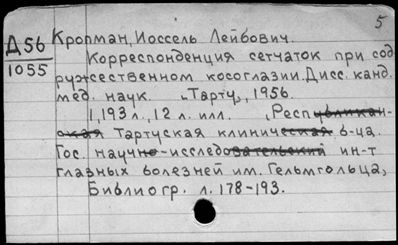 5
Д56
1055
Кропман, Иоссель Лейбович.
Корреспонденция сетчаток при сод
ружественном косоглазии. Дисс. канд.
мед. наук. „Тарту„, 1956.
1, 193 л., 12 л. илл. „Республикан-
ская Тартуская клиническая б-ца.
Гос. научно-исследовательский ин-т
глазных болезней им. Гельмгольца„
Библиогр. л. 178-193.